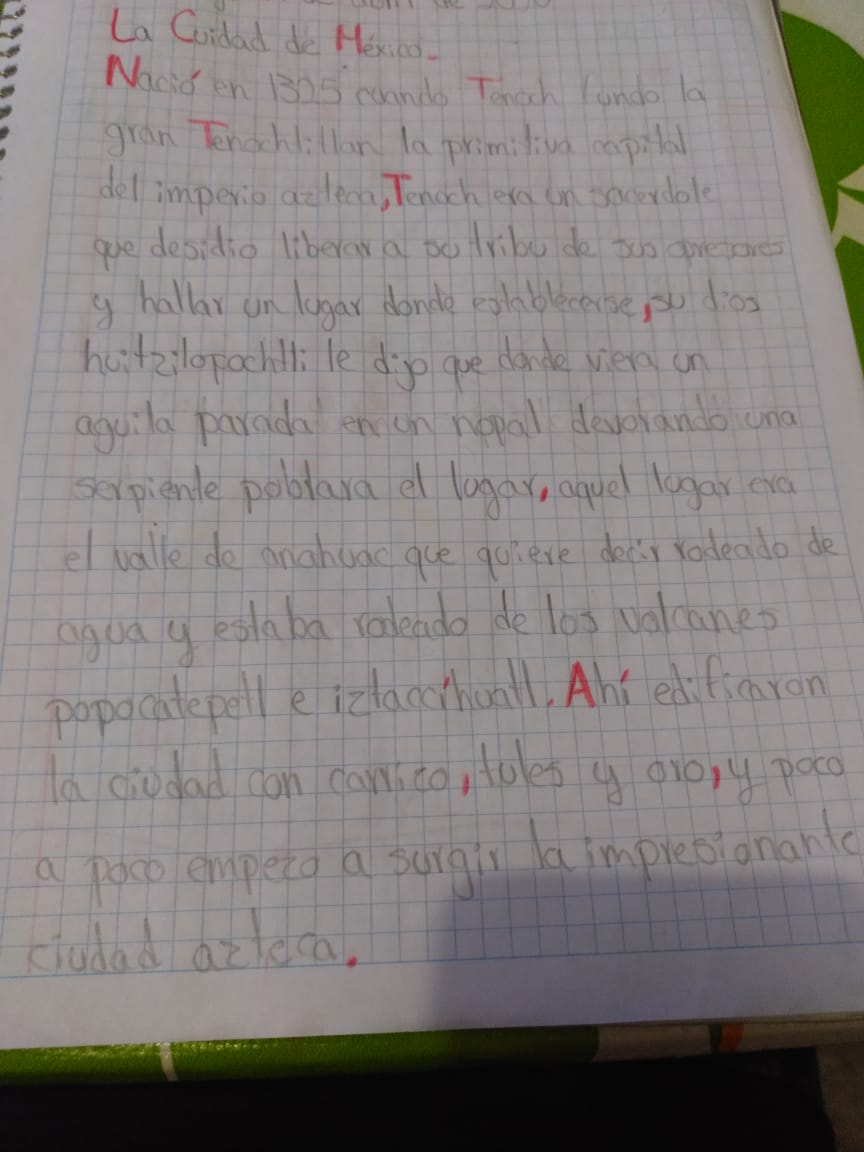 de
La Cuidad de México.
Nació en 1325 cuando Tenoch fundo la
gran Tenochtitlan la primitiva capital
del imperio azteca, Tenoch era un sacerdote
que desidio liberar a su tribu de sus opresores
y hallar un lugar donde establecerse, su dios
huitzilopochtli le dijo que donde viera un
aguila parada en un nopal devorando una
serpiente poblara el lugar, aquel lugar era
el valle de anahuac que quiere decir rodeado de
agua y estaba rodeado de los volcanes
popocatepetl e iztaccihuatl. Ahí edificaron
la ciudad con carrizo, tules y oro, y poco
a poco empezo a surgir la impresionante
ciudad azteca.